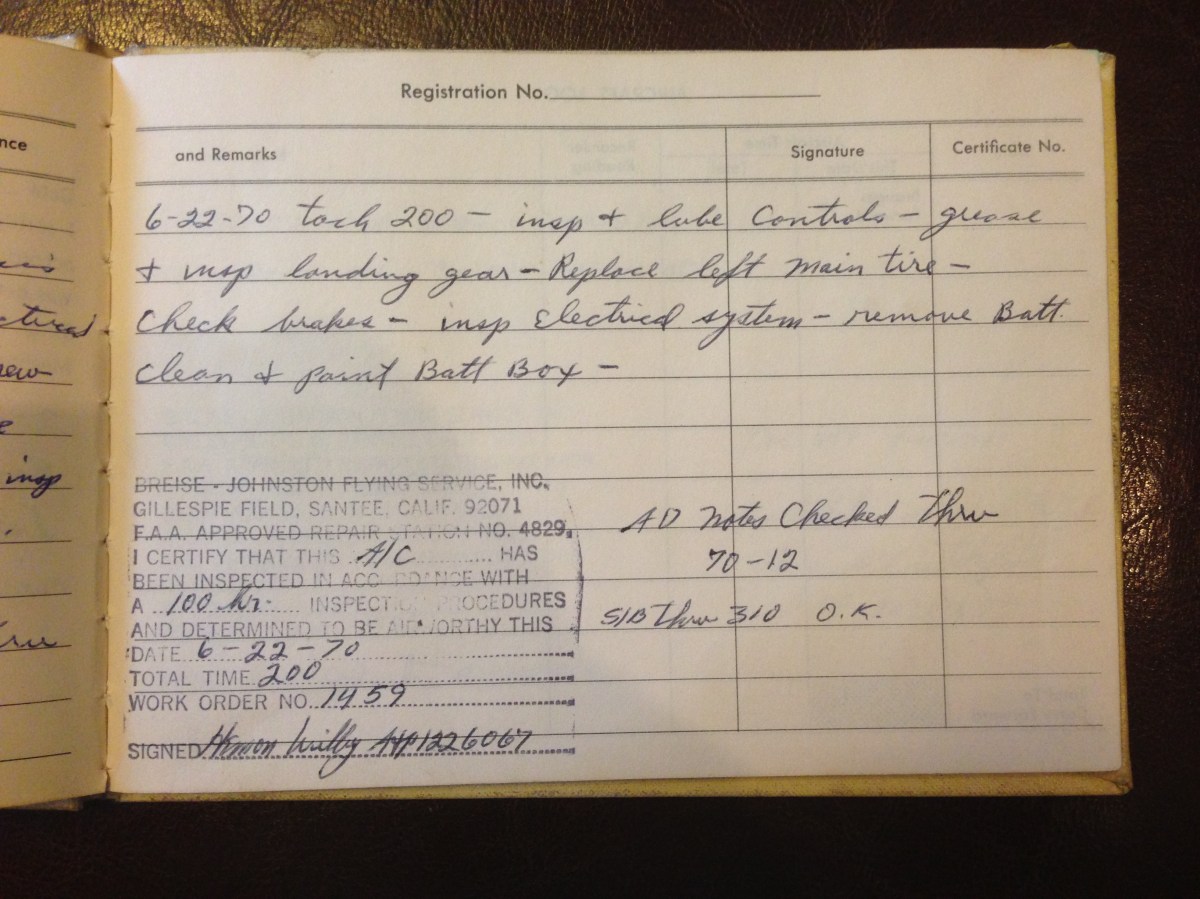 Registration No.
nce
and Remarks Signature Certificate No.
6-22-70 tach 200 - insp + lube Controls - grease
+ insp landing gear - Replace left main tire -
Check brakes - insp Electrical system - remove Batt.
Clean + paint Batt Box -
ew
insp
BREISE - JOHNSTON FLYING SERVICE, INC.
GILLESPIE FIELD, SANTEE, CALIF. 92071
F.A.A. APPROVED REPAIR STATION NO. 4829,
I CERTIFY THAT THIS A/C HAS
BEEN INSPECTED IN ACCORDANCE WITH
A 100 hr. INSPECTION PROCEDURES
AND DETERMINED TO BE AIRWORTHY THIS
DATE 6-22-70
TOTAL TIME 200
WORK ORDER NO. 1459
SIGNED AP1226067
AD notes Checked Thru
70-12
S/B Thru 310 O.K.